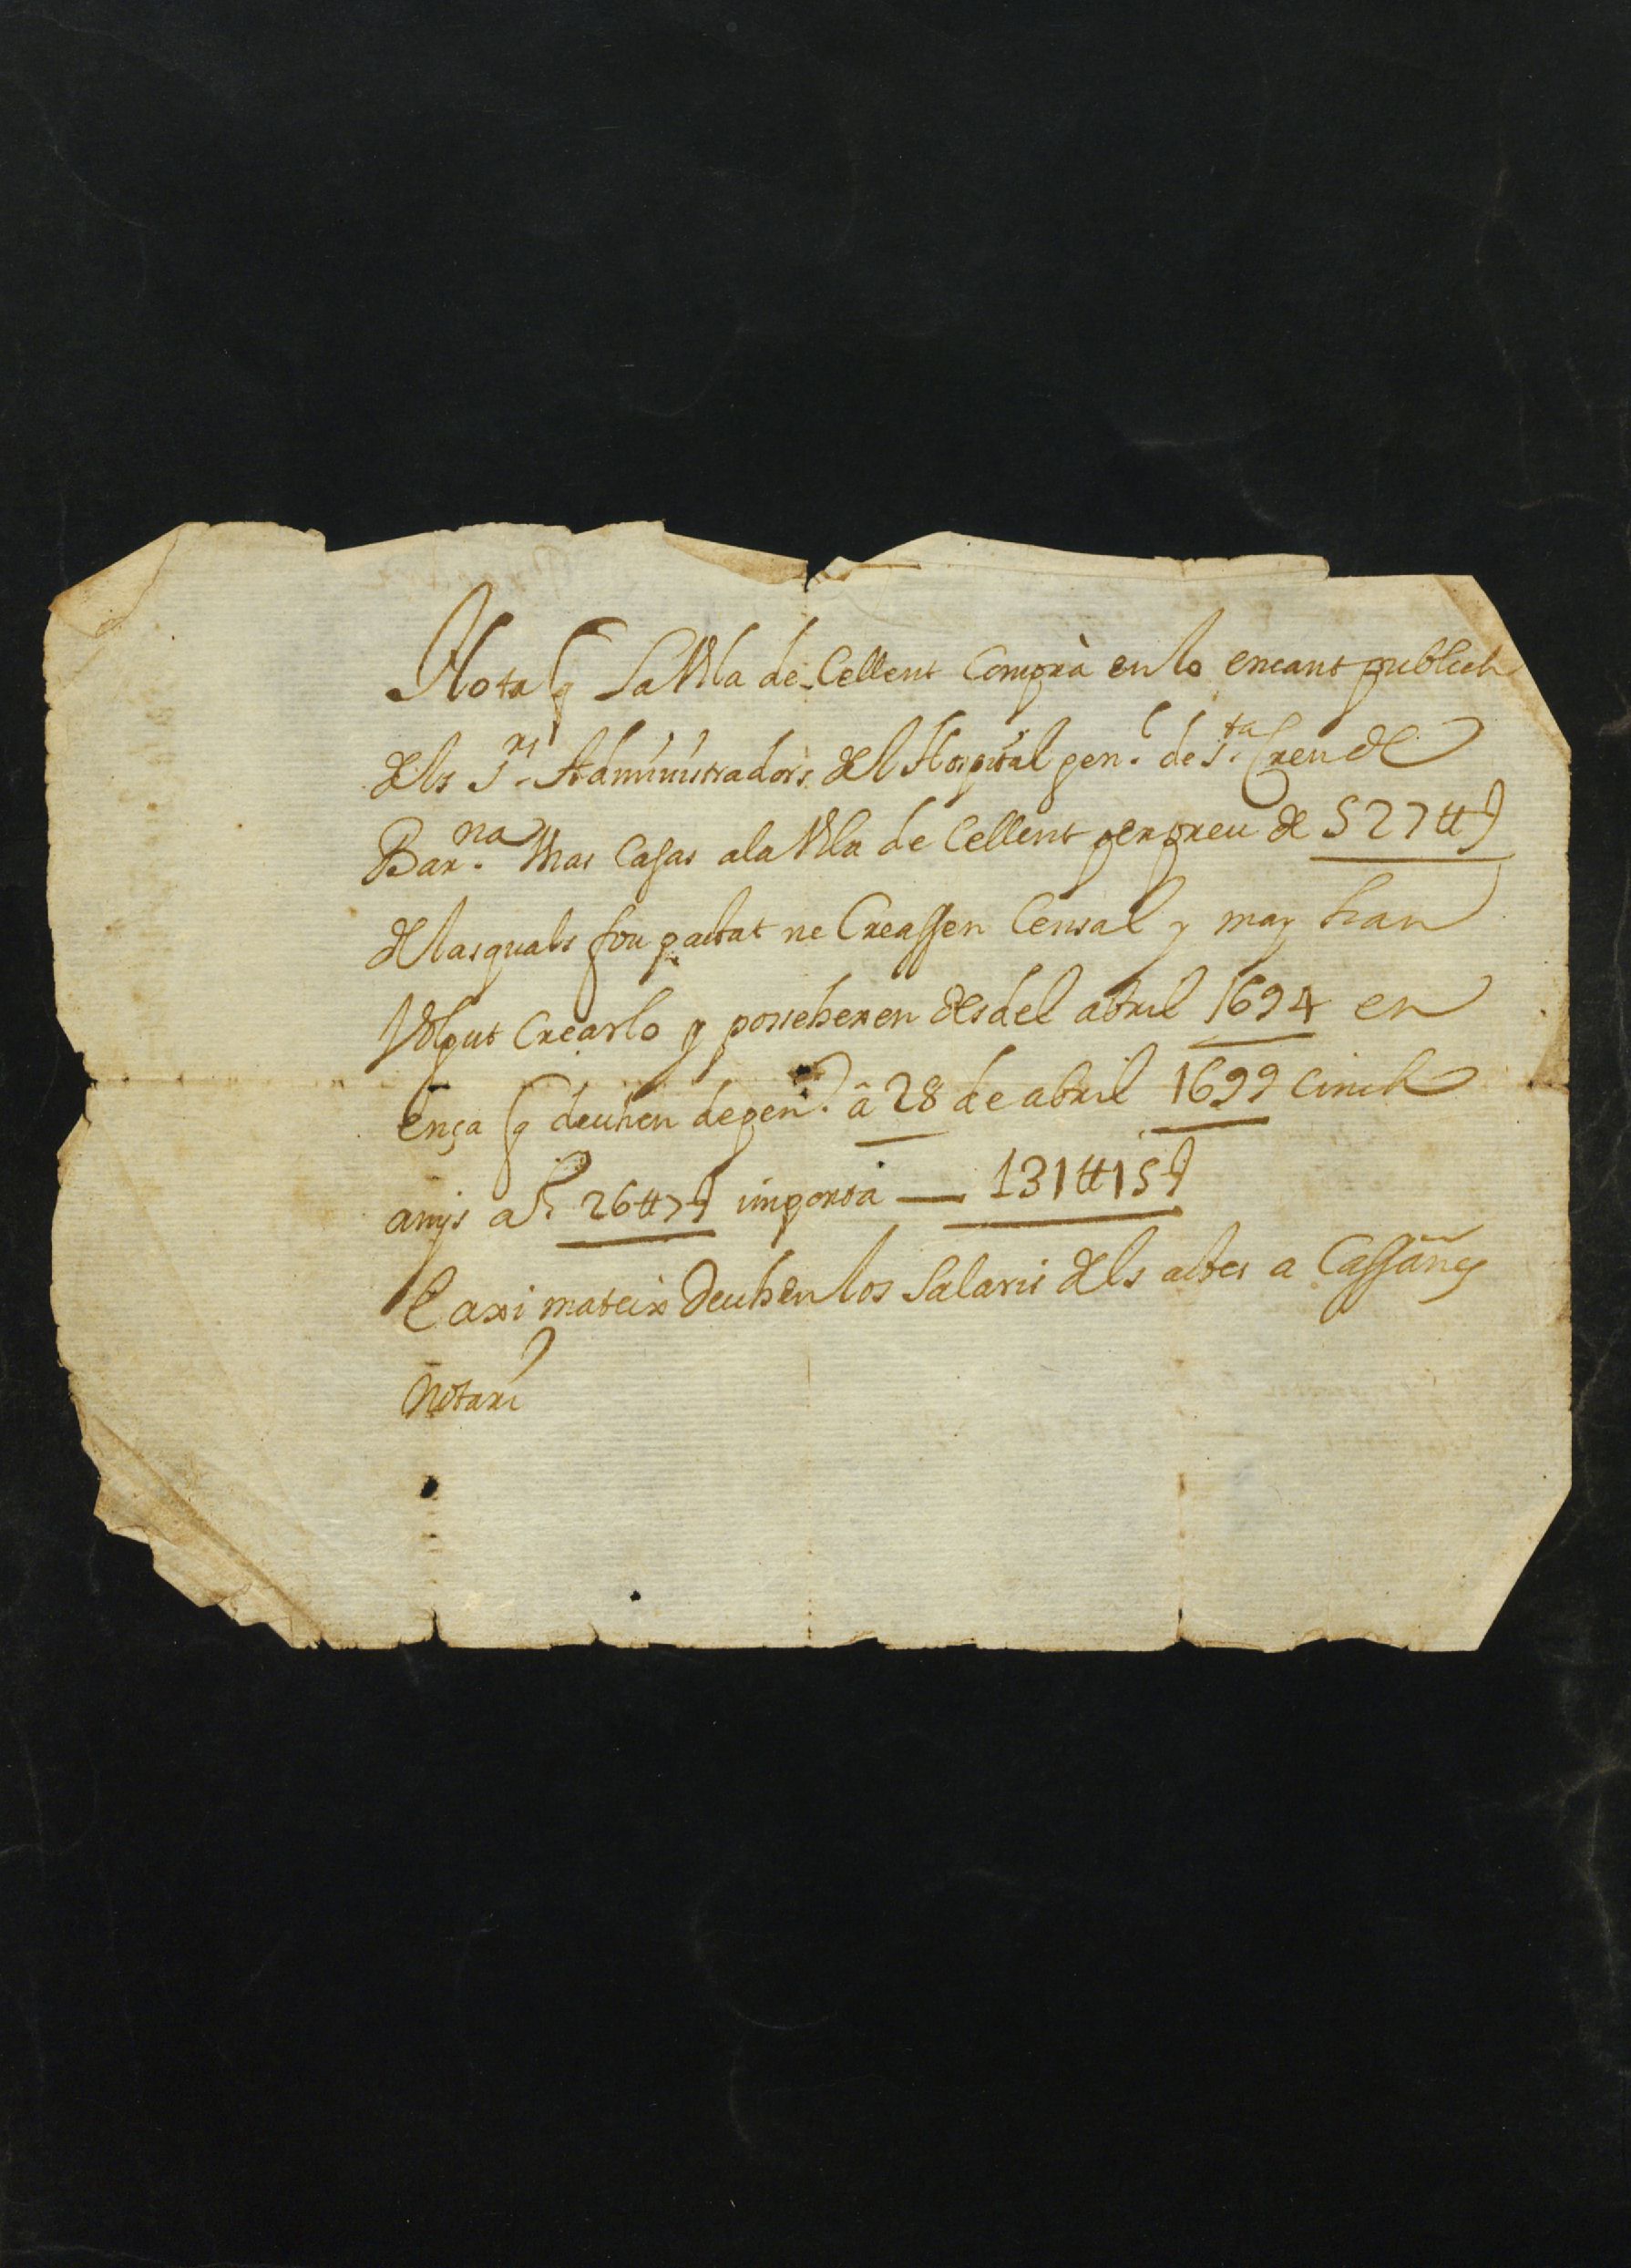 Nota q̃ la Vila de Cellent Comprà en lo encant publich
dels S.rs Administradors del Hospital gen.l de S.ta Creu de
Bar.na unas Casas a la Vila de Cellent per preu de 527 ℔ ß
de las quals fou pactat ne Creassen Censal y may han
Volgut Crearlo y possehexen desdel abril 1694 en
ença q̃ deuhen de pen.º â 28 de abril 1699 cinch
anys a R. 26 ℔ 7 ß importa — 131 ℔ 15 ß
E axi mateix deuhen los Salaris dels actes a Cassañes
Notari